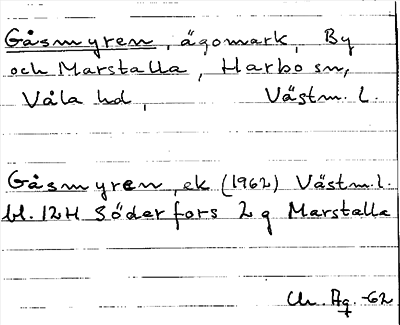 Gåsmyren, ägomark, By
och Marstalla, Harbo sn,
Våla hd, Västm. l.
Gåsmyren, ek (1962) Västm. l.
bl. 12H Söderfors 2 g Marstalla
Ch. Ag. -62